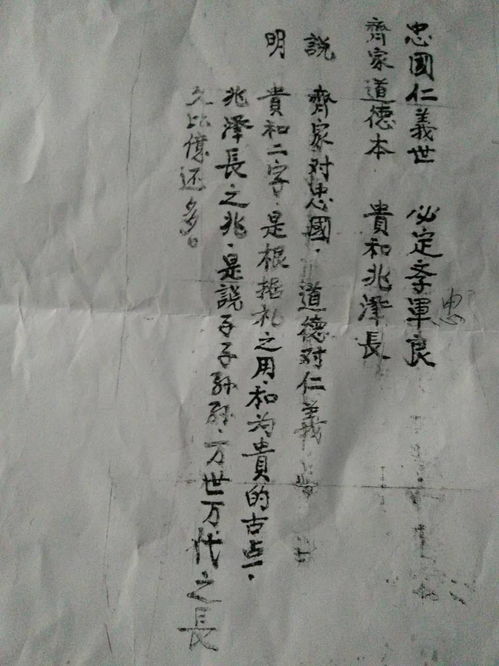 忠國仁義世 必定季軍良
忠
齊家道德本 貴和兆澤長
說 齊家对忠國．道德对仁義
明 貴和二字．是根据礼之用．和为貴的古占．
兆澤長之兆．是説子子孙孙．万世万代之長
久比億还多．